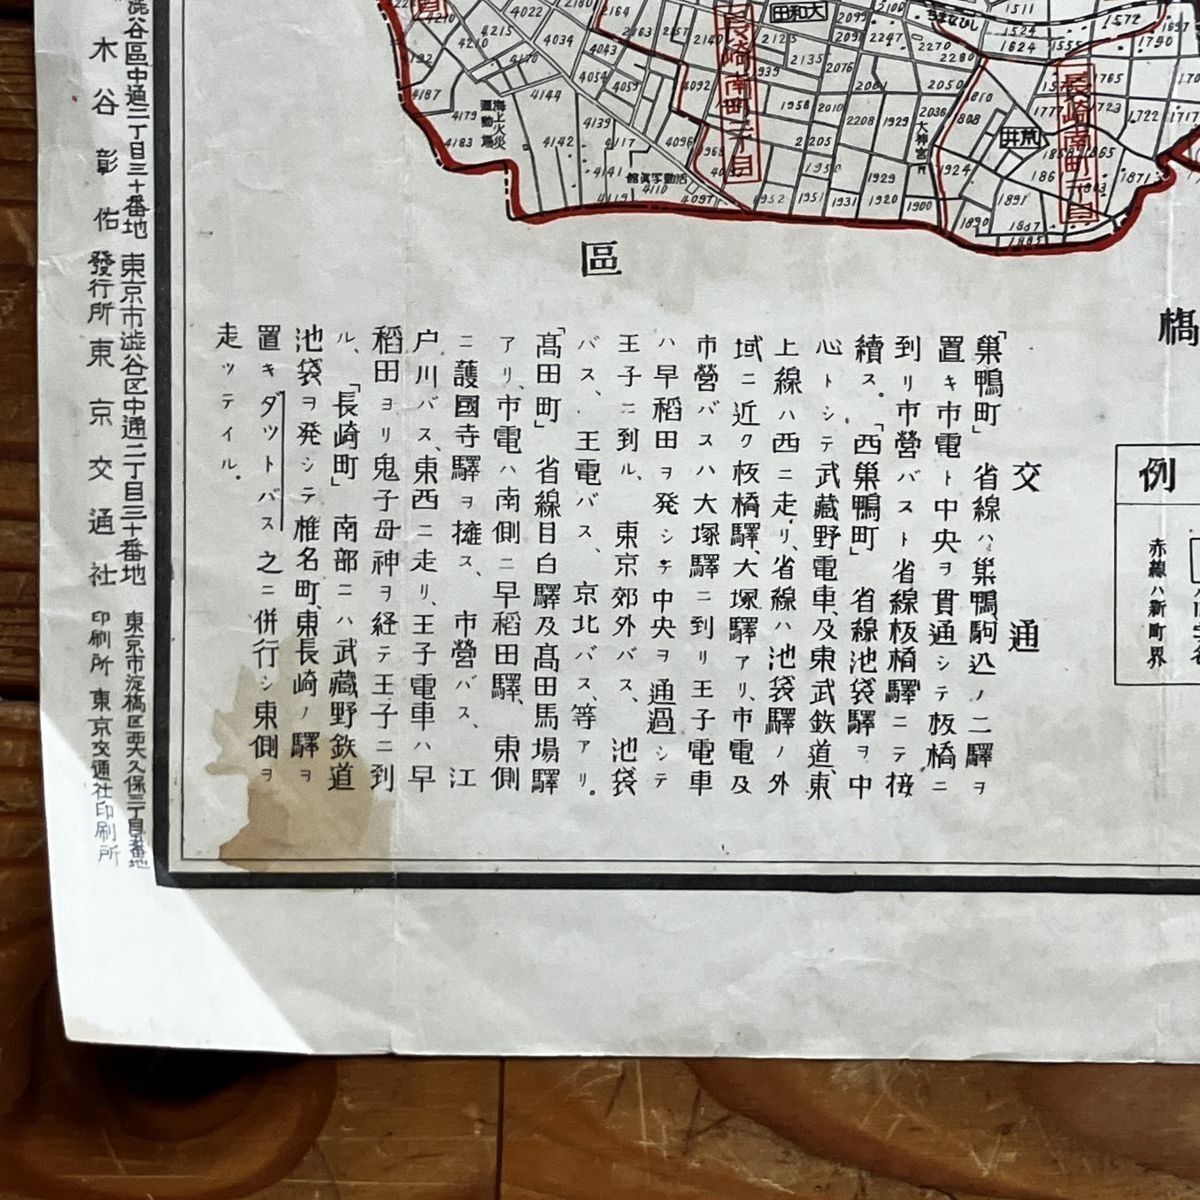 交通
「巣鴨町」 省線ハ巣鴨、駒込ノ二驛ヲ
置キ市電ト中央ヲ貫通シテ板橋ニ
到リ市営バスト省線板橋驛ニテ接
續ス。「西巣鴨町」 省線池袋驛ヲ中
心トシテ武蔵野電車、及東武鉄道、東
上線ハ西ニ走リ、省線ハ池袋驛ノ外
域ニ近ク板橋驛、大塚驛アリ、市電及
市營バスハ大塚驛ニ到リ王子電車
ハ早稲田ヲ発シテ中央ヲ通過シテ
王子ニ到ル、東京郊外バス、池袋
バス、王電バス、京北バス、等アリ。
「髙田町」 省線目白驛及髙田馬場驛
アリ、市電ハ南側ニ早稲田驛、東側
ニ護國寺驛ヲ擁ス、市營バス、江
戸川バス、東西ニ走リ、王子電車ハ早
稲田ヨリ鬼子母神ヲ経テ王子ニ到
ル、「長崎町」 南部ニハ武蔵野鉄道
池袋ヲ発シテ椎名町、東長崎ノ驛ヲ
置キダットバス之ニ併行シ東側ヲ
走ッテイル。
區
橋
例
赤線ハ新町界
長崎南町二丁目
大和田
荒井
大神宮
海上火災運動場
活動写眞館
しひなまち
澁谷區中通二丁目三十番地
木谷彰佑
東京市澁谷区中通二丁目三十番地
發行所 東京交通社
東京市淀橋区西大久保三丁目五番地
印刷所 東京交通社印刷所
4210
4215
4022
4034
4043
4144
4139
4142
4117
4141
4119
4110
4097
4096
4187
4179
4183
4054
4059
2135
2076
1958
2010
2208
1929
2036
1924
1952
1951
1931
1920
1900
1890
1891
1871
1572
1511
1524
1624
1790
1722
2270
2280
2050
2247